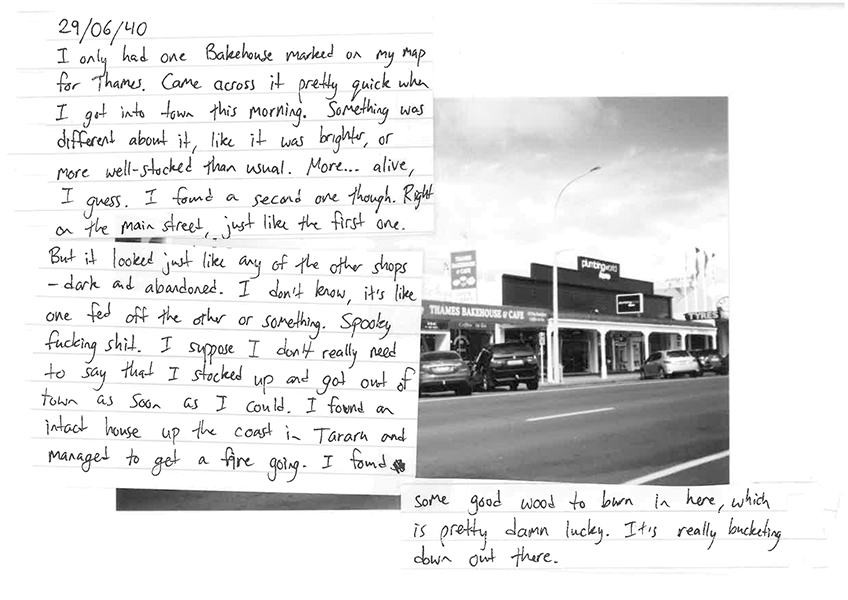 29/06/40
I only had one Bakehouse marked on my map
for Thames. Came across it pretty quick when
I got into town this morning. Something was
different about it, like it was brighter, or
more well-stocked than usual. More... alive,
I guess. I found a second one though. Right
on the main street, just like the first one.
But it looked just like any of the other shops
- dark and abandoned. I don't know, it's like
one fed off the other or something. Spooky
fucking shit. I suppose I don't really need
to say that I stocked up and got out of
town as soon as I could. I found an
intact house up the coast in Tararu and
managed to get a fire going. I found
some good wood to burn in here, which
is pretty damn lucky. It's really bucketing
down out there.
THAMES
BAKEHOUSE
& CAFE
plumbingworld
THAMES BAKEHOUSE & CAFE
TYRES